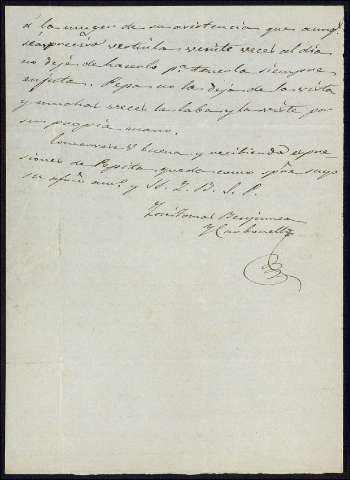 á la muger de su asistencia que aunqe.
sea preciso vestirla veinte veces al dia
no dejé de hacerlo pa. tenerla siempre
enjuta. Pepa no la deja de la vista
y muchas veces la laba y la viste por
su propia mano.
Conservese V. buena y recibiendo espre-
siones de Pepita quede como pre. suyo
su afmo. amo. y SS. Q. B. S. P.
José Tomas Benjumea
y Carbonell